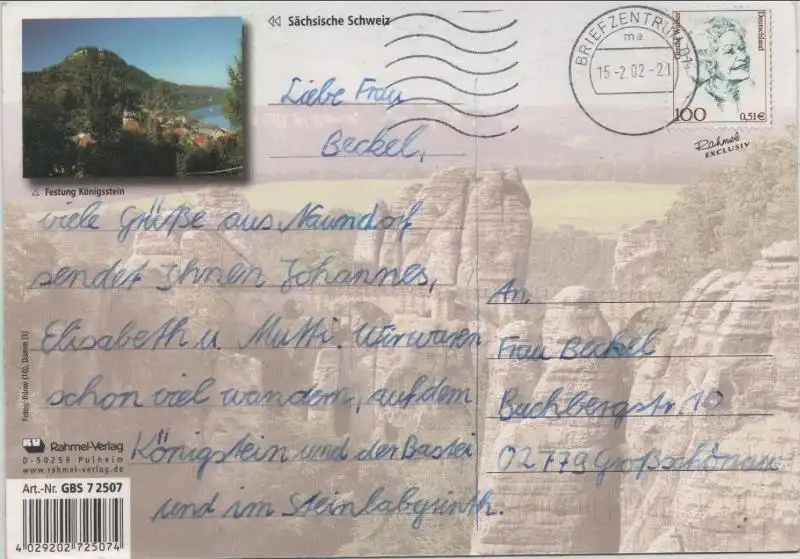 Sächsische Schweiz
Liebe Frau
Beckel,
Festung Königsstein
viele Grüße aus Naundorf
sendet Ihnen Johannes,
Elisabeth u. Mutti. Wir waren
schon viel wandern, auf dem
Königstein und der Bastei
und im Steinlabyrinth.
BRIEFZENTRUM 01
ma
15-2.02-21
Deutschland
100
0,51€
Rahmel
EXCLUSIV
An
Frau Beckel
Buchbergstr. 10
02779 Großschönau
Rahmel-Verlag
D-50259 Pulheim
www.rahmel-verlag.de
Art.-Nr. GBS 7 2507
4 029202 725074